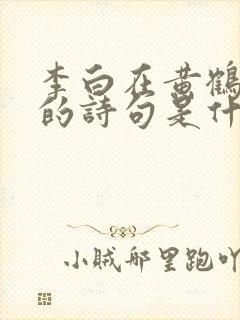 李白在黄鶴
的詩句是什
小賊哪里跑吖